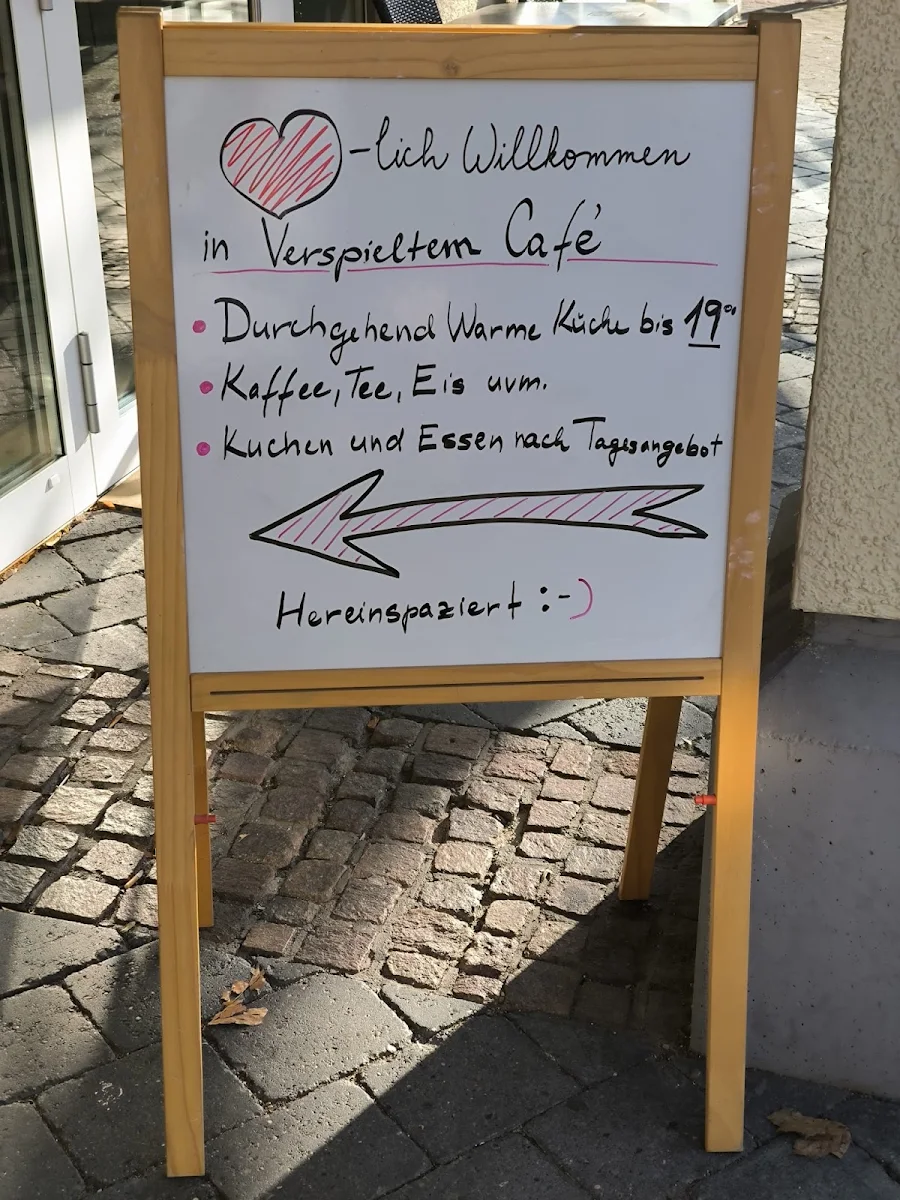 -lich Willkommen
in Verspieltem Café
• Durchgehend Warme Küche bis 19⁰⁰
• Kaffee, Tee, Eis uvm.
• Kuchen und Essen nach Tagesangebot
Hereinspaziert :-)